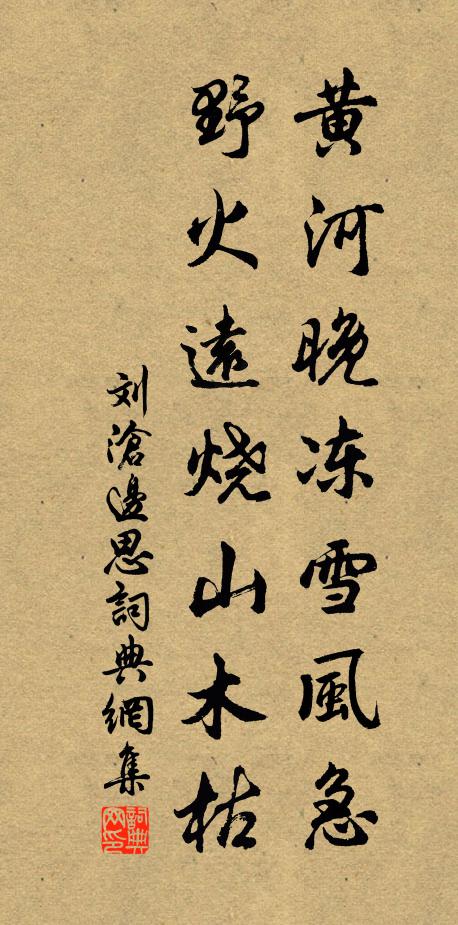 黄河晚冻雪風急
野火遠燒山木枯
刘滄邊思詞典網集
詞典网印